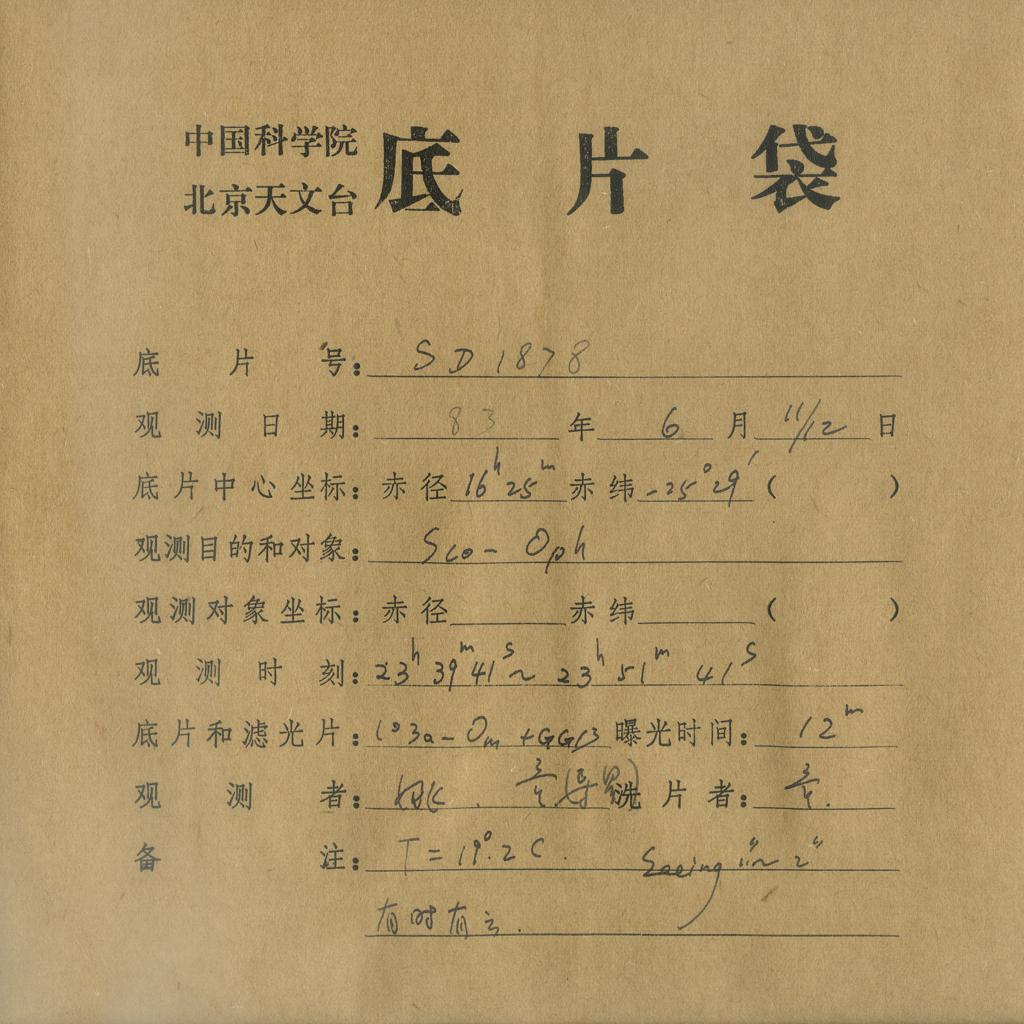 中国科学院
北京天文台
底片袋
底片号：SD1878
观测日期：83年6月11/12日
底片中心坐标：赤径16h25m赤纬-25°29′（ ）
观测目的和对象：Sco-Oph
观测对象坐标：赤径 赤纬 （ ）
观测时刻：23h39m41s～23h51m41s
底片和滤光片：103a-Om+GG13曝光时间：12m
观测者： 洗片者：
备注：T=19°.2C. Seeing 1"~2"
有时有云.